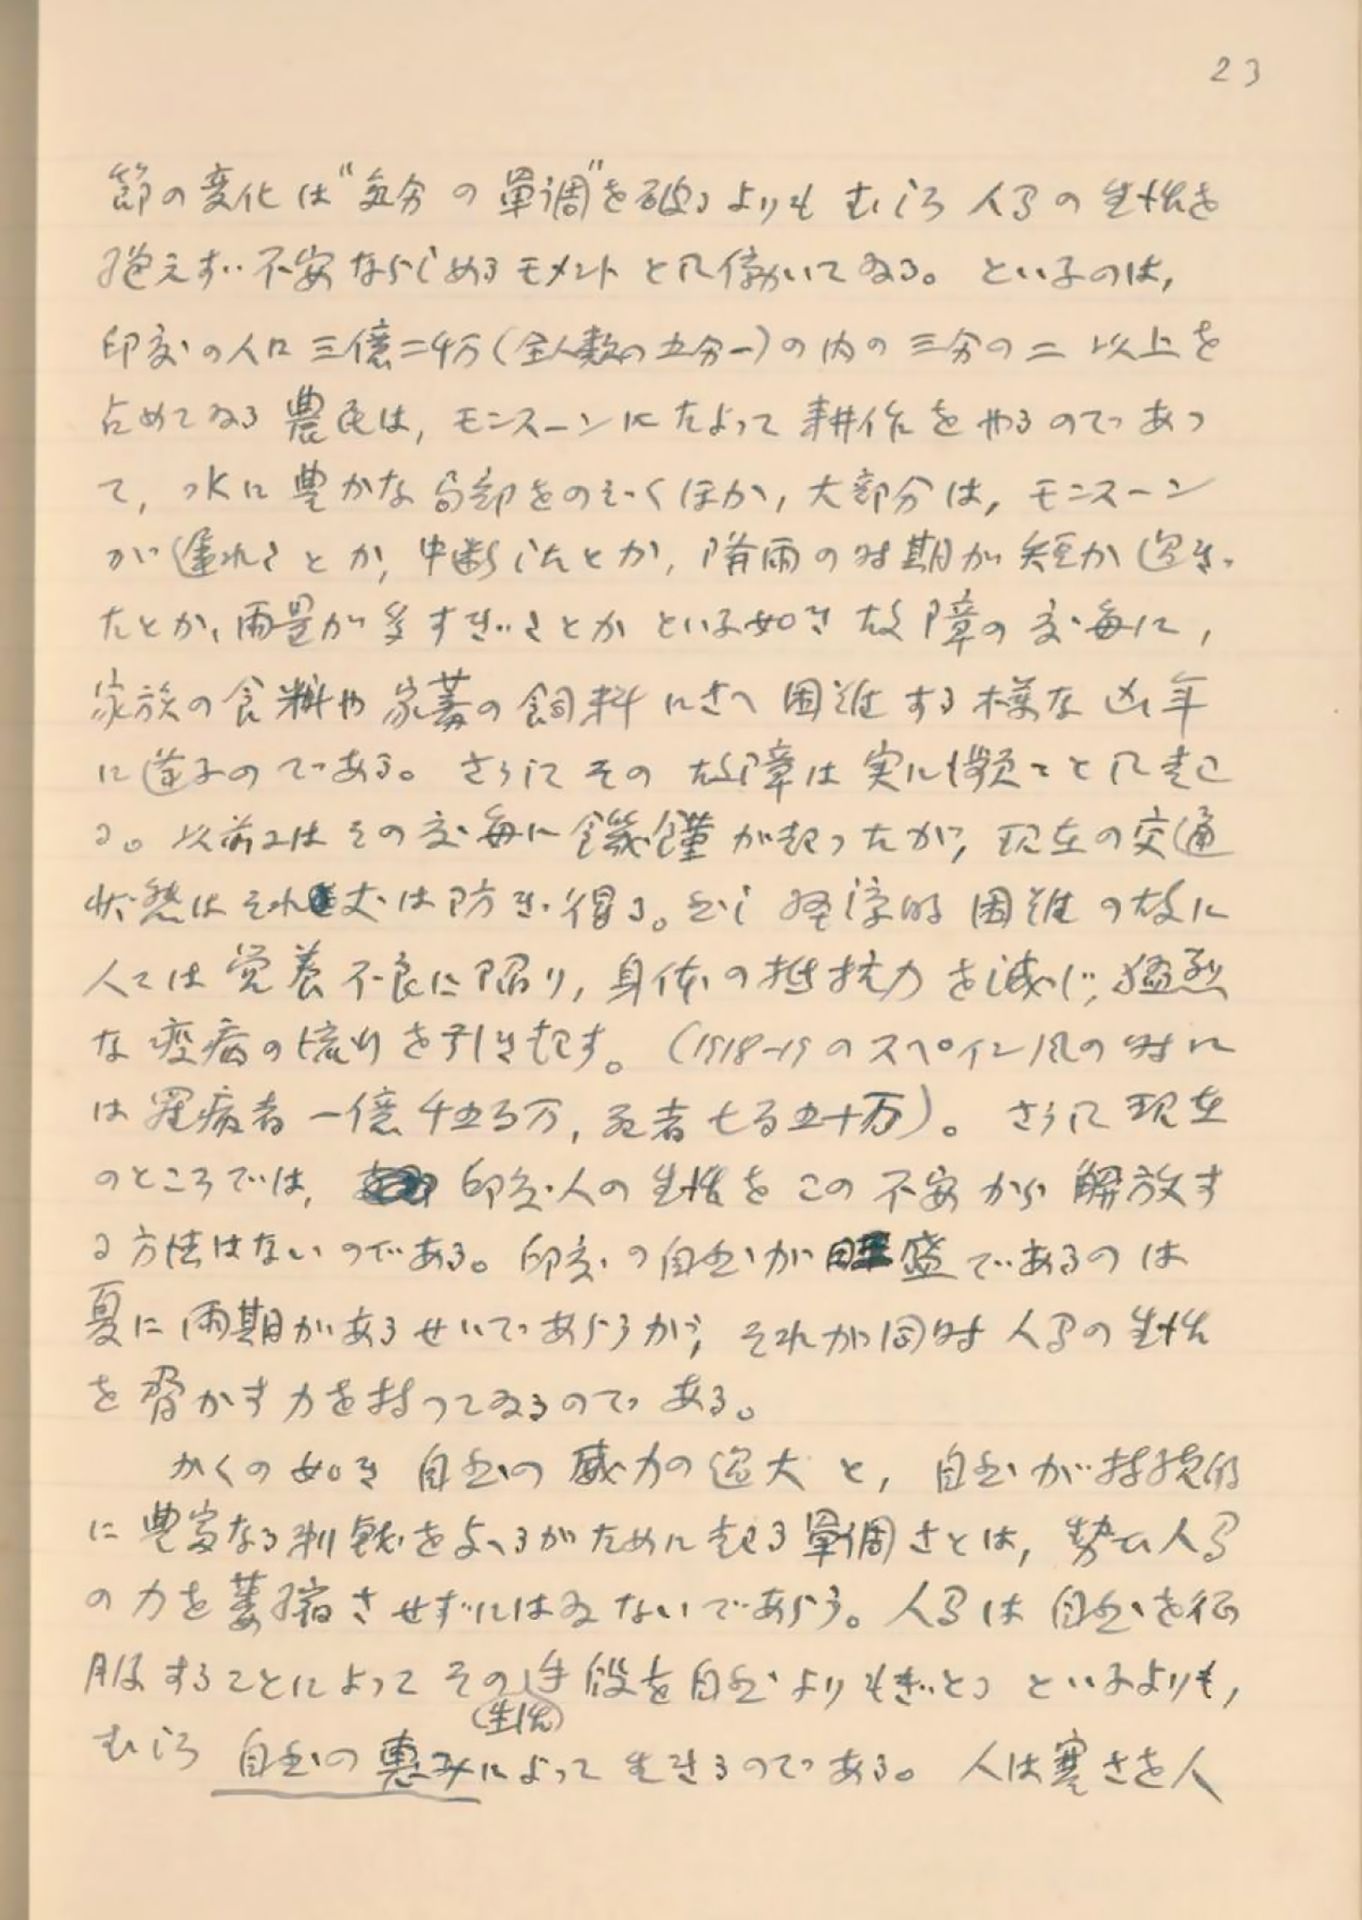 23
節の変化は“気分の単調”を破るよりもむしろ人間の生活を
絶えず不安ならしめるモメントとして働いてゐる。といふのは,
印度の人口三億二千万(全人類の五分一)の内の三分の二以上を
占めてゐる農民は, モンスーンにたよって耕作をやるのであつ
て, 水に豊かな局部をのぞくほか, 大部分は, モンスーン
が遅れたとか, 中断したとか, 降雨の時期が短か過ぎ
たとか, 雨量が多すぎたとかといふ如き故障の度毎に,
家族の食料や家蓄の飼料にさへ困難する様な凶年
に逢ふのである。さらにその故障は実に頻々として起こ
る。以前にはその度毎に饑饉が起ったが, 現在の交通
状態はそれ丈は防ぎ得る。然し経済的困難の故に
人々は営養不良に陥り, 身体の抵抗力を減じ, 猛烈
な疫病の流行を引き起す。(1918-19のスペイン風の時に
は罹病者一億千五百万, 死者七百五十万)。さらに現在
のところでは, 印度人の生活をこの不安から解放す
る方法はないのである。印度の自然が旺盛であるのは
夏に雨期があるせいであらうが, それが同時人間の生活
を脅かす力を持ってゐるのである。
かくの如き自然の威力の過大と, 自然が持続的
に豊富なる刺戟を与へるがために起る単調さとは, 勢ひ人間
の力を萎縮させずにはゐないであらう。人間は自然を征
服することによってその手段を自然よりもぎとるといふよりも,
(生活)
むしろ自然の恵みによって生きるのである。人は寒さを人